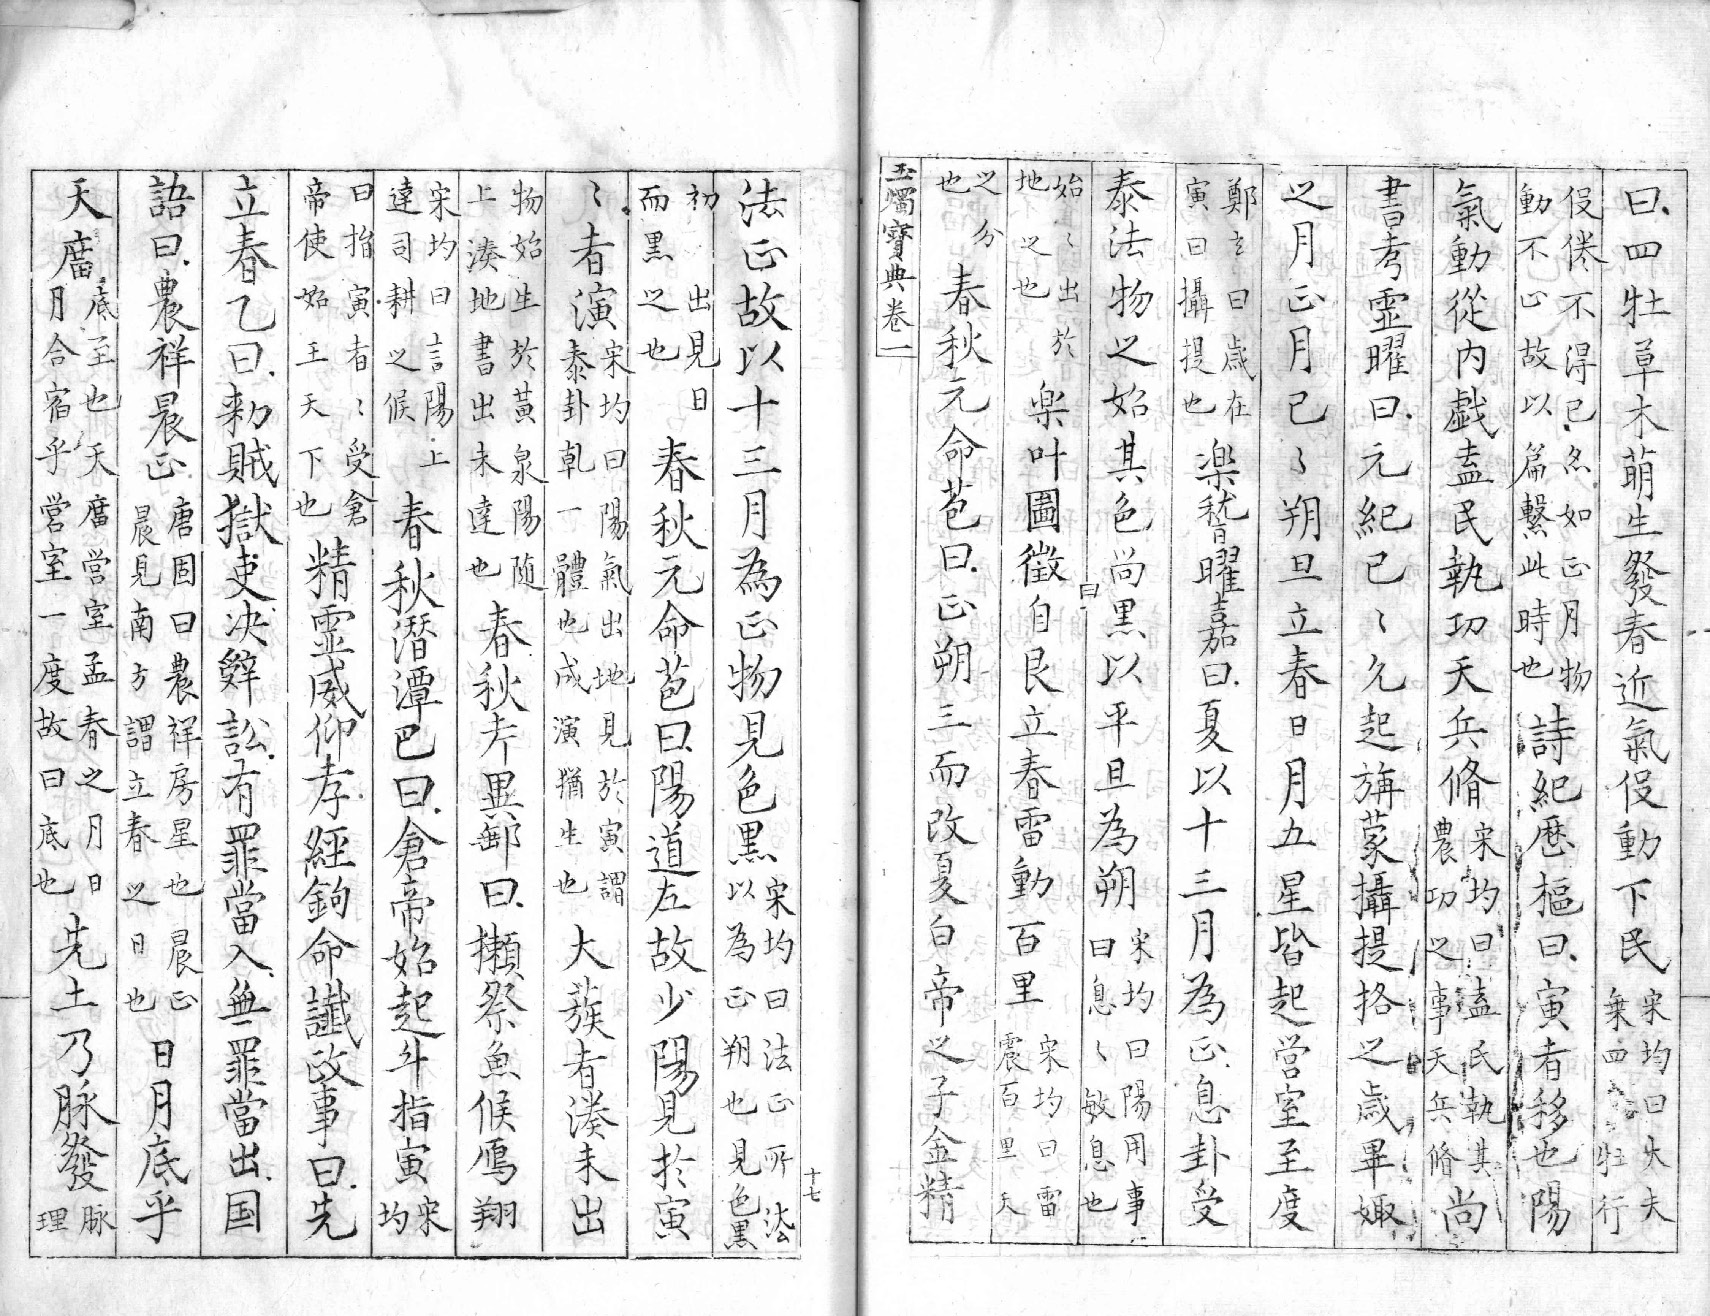 曰四牡草木萌生發春近氣伇動下民宋均曰大夫乗四牡行
伇倦不得已忽如正月物動不心故以篇繫此時也詩紀歷樞曰寅者移也陽
氣動從内戯盍民執功天兵脩宋均曰盍民執其農功之事天兵脩尚
書考霊曜曰元紀已〻允起旃蒙攝提挌之歳畢娵
之月正月已〻朔旦立春日月五星皆起営室至度
鄭玄曰歳在寅曰攝提也楽嵇曜嘉曰夏以十三月為正息卦受
泰法物之始其色尚黒以平旦為朔宋均曰陽用事曰息〻敏息也
始其〻出於地不之也楽叶圖徴曰自艮立春雷動百里宋均曰雷震百里天
之分也春秋元命苞曰正朔三而改夏白帝之子金精
玉燭寶典卷一
法正故以十三月為正物見色黒宋均曰法正所法以為正朔也見色黒
初出見日而黒之也春秋元命苞曰陽道左故少陽見於寅
〻者演宋均曰陽氣出地見於寅謂泰卦乹一體也成演猶生也大蔟者湊未出
物始生於黄泉陽随上湊地書出未達也春秋考異郵曰獺祭魚候鳫翔
宋均曰言陽上達司耕之候春秋潛潭巴曰倉帝始起斗指寅宋均
曰指寅者〻受倉帝使始王天下也精霊威仰孝經鉤命讖改事曰先
立春乙曰勑賊獄吏决辭訟有罪當入無罪當出国
語曰農祥晨正唐固曰農祥房星也晨正晨見南方謂立春之日也日月底乎
天廟底至也天廟営室孟春之月日月合宿乎営室一度故曰底也先土乃脉發脉理
十七